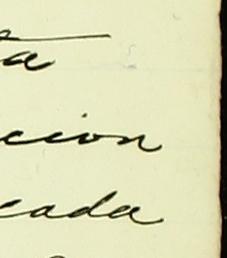 ta
cion
cada